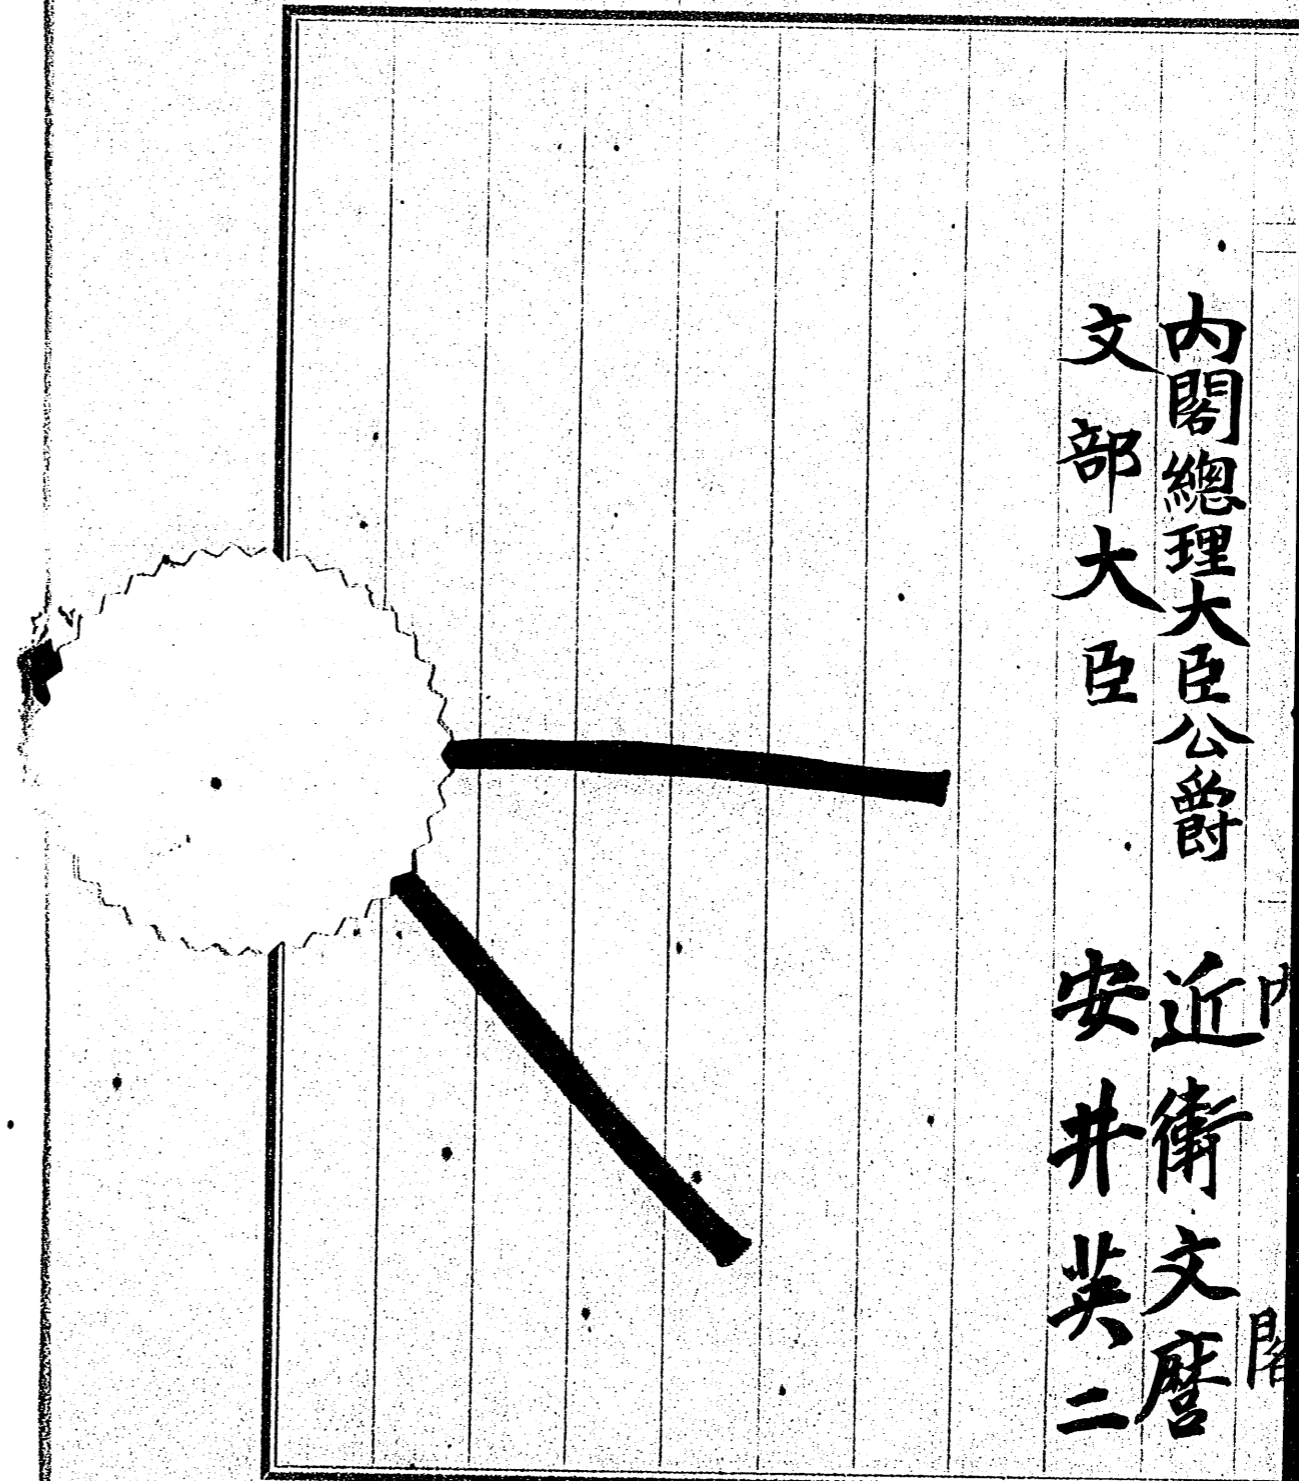 内閣
内閣總理大臣公爵 近衞文麿
文部大臣 安井英二